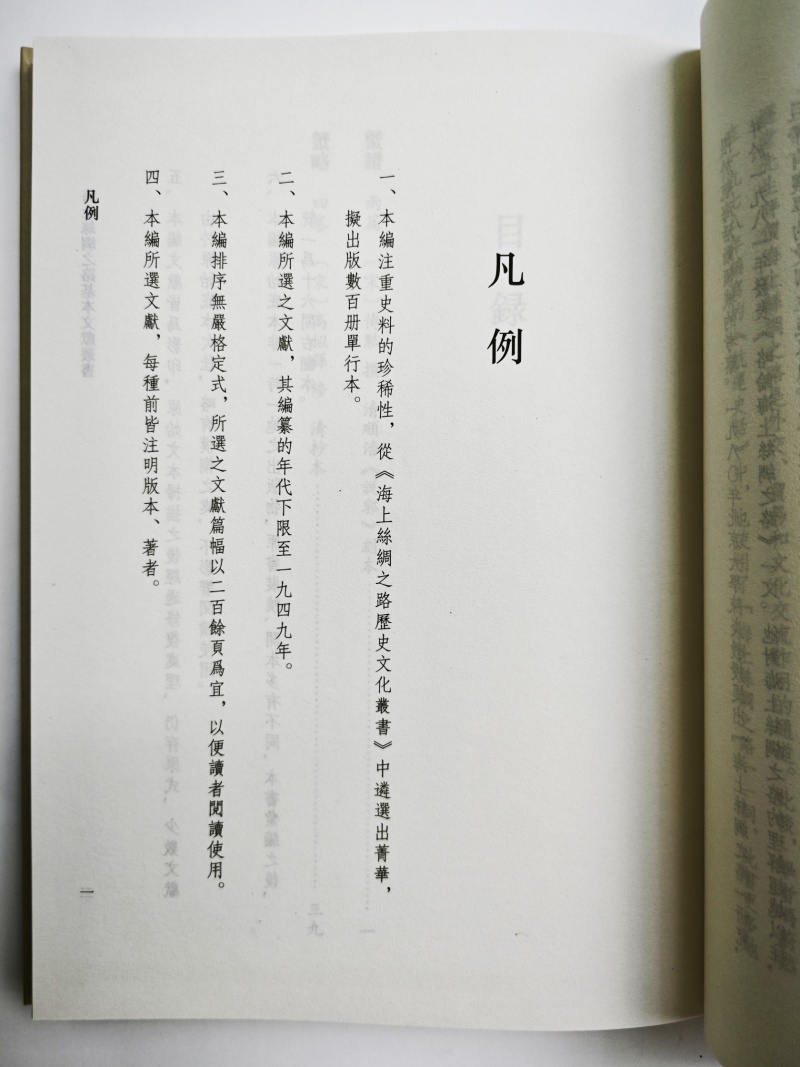 凡例
一、本編注重史料的珍稀性，從《海上絲綢之路歷史文化叢書》中遴選出菁華，
擬出版數百册單行本。
二、本編所選之文獻，其編纂的年代下限至一九四九年。
三、本編排序無嚴格定式，所選之文獻篇幅以二百餘頁爲宜，以便讀者閱讀使用。
四、本編所選文獻，每種前皆注明版本、著者。
凡例
一